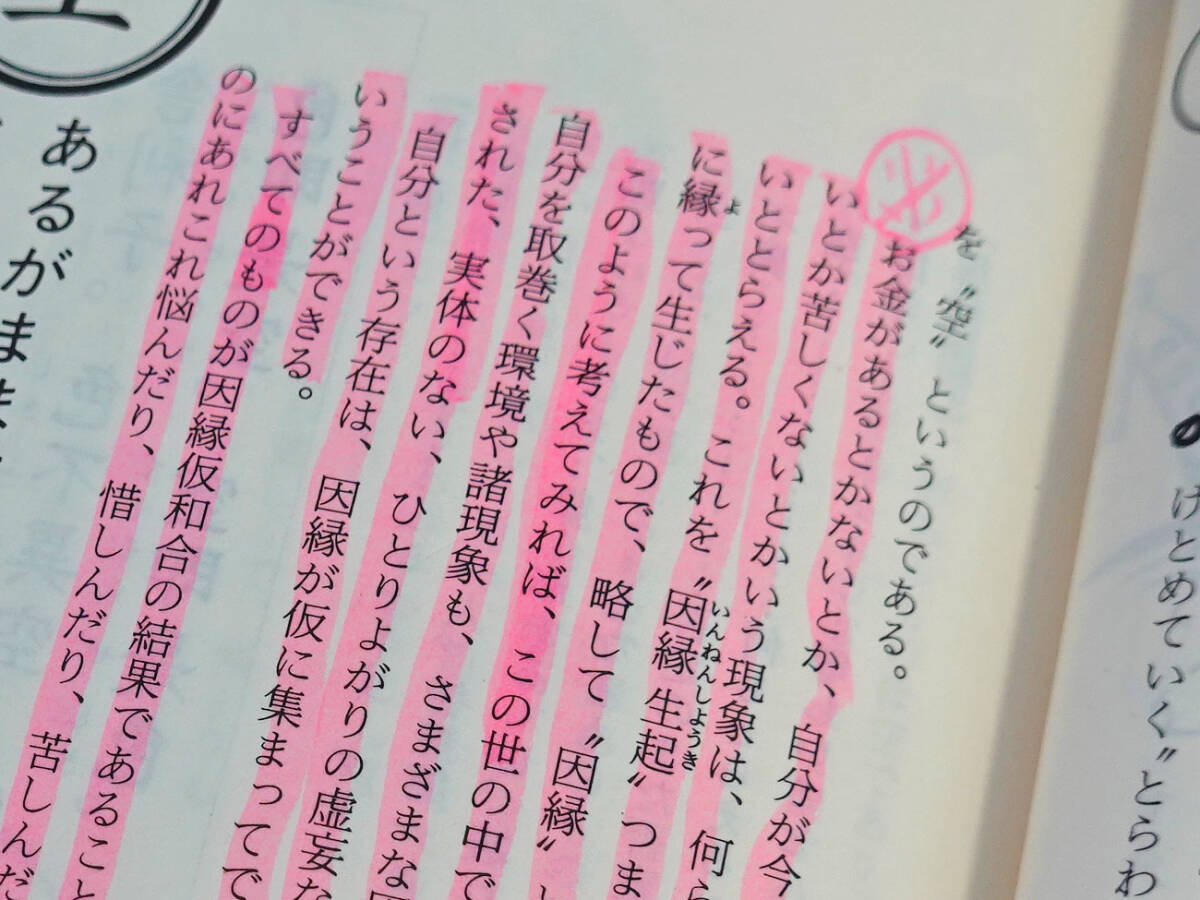 けとめていく〟とらわ
を〝空〟というのである。
お金があるとかないとか、自分が今
いとか苦しくないとかいう現象は、何ら
いととらえる。これを〝因縁生起〟つま
いんねんしょうき
に縁って生じたもので、略して〝因縁〟
よ
このように考えてみれば、この世の中で
自分を取巻く環境や諸現象も、さまざまな
された、実体のない、ひとりよがりの虚妄な
自分という存在は、因縁が仮に集まってで
いうことができる。
すべてのものが因縁仮和合の結果であること
のにあれこれ悩んだり、惜しんだり、苦しんだ
あるがまま